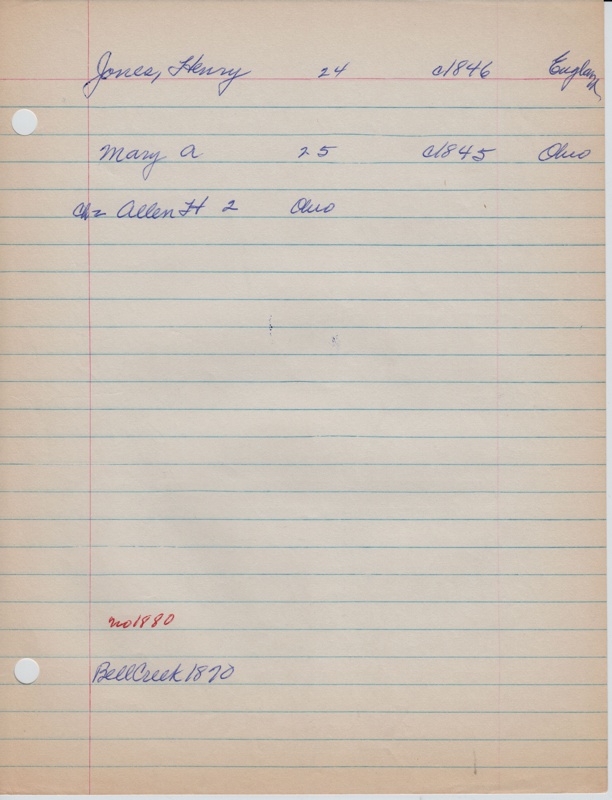 Jones, Henry 24 c1846 England
Mary A 25 c1845 Ohio
Ch= Allen H 2 Ohio
no 1880
Bell Creek 1870